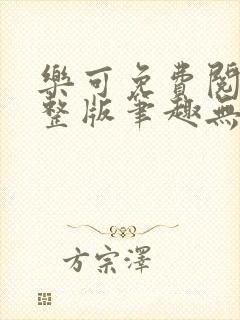 樂可免費閱
整版筆趣無
方宗澤